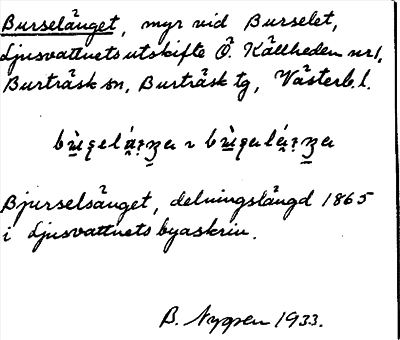 Burselänget, myr vid Burselet,
Ljusvattnets utskifte Ö. Källheden nr 1,
Burträsk sn, Burträsk tg, Västerb. l.
Bjurselsänget, delningslängd 1865
i Ljusvattnets byaskrin.
B. Nygren 1933.